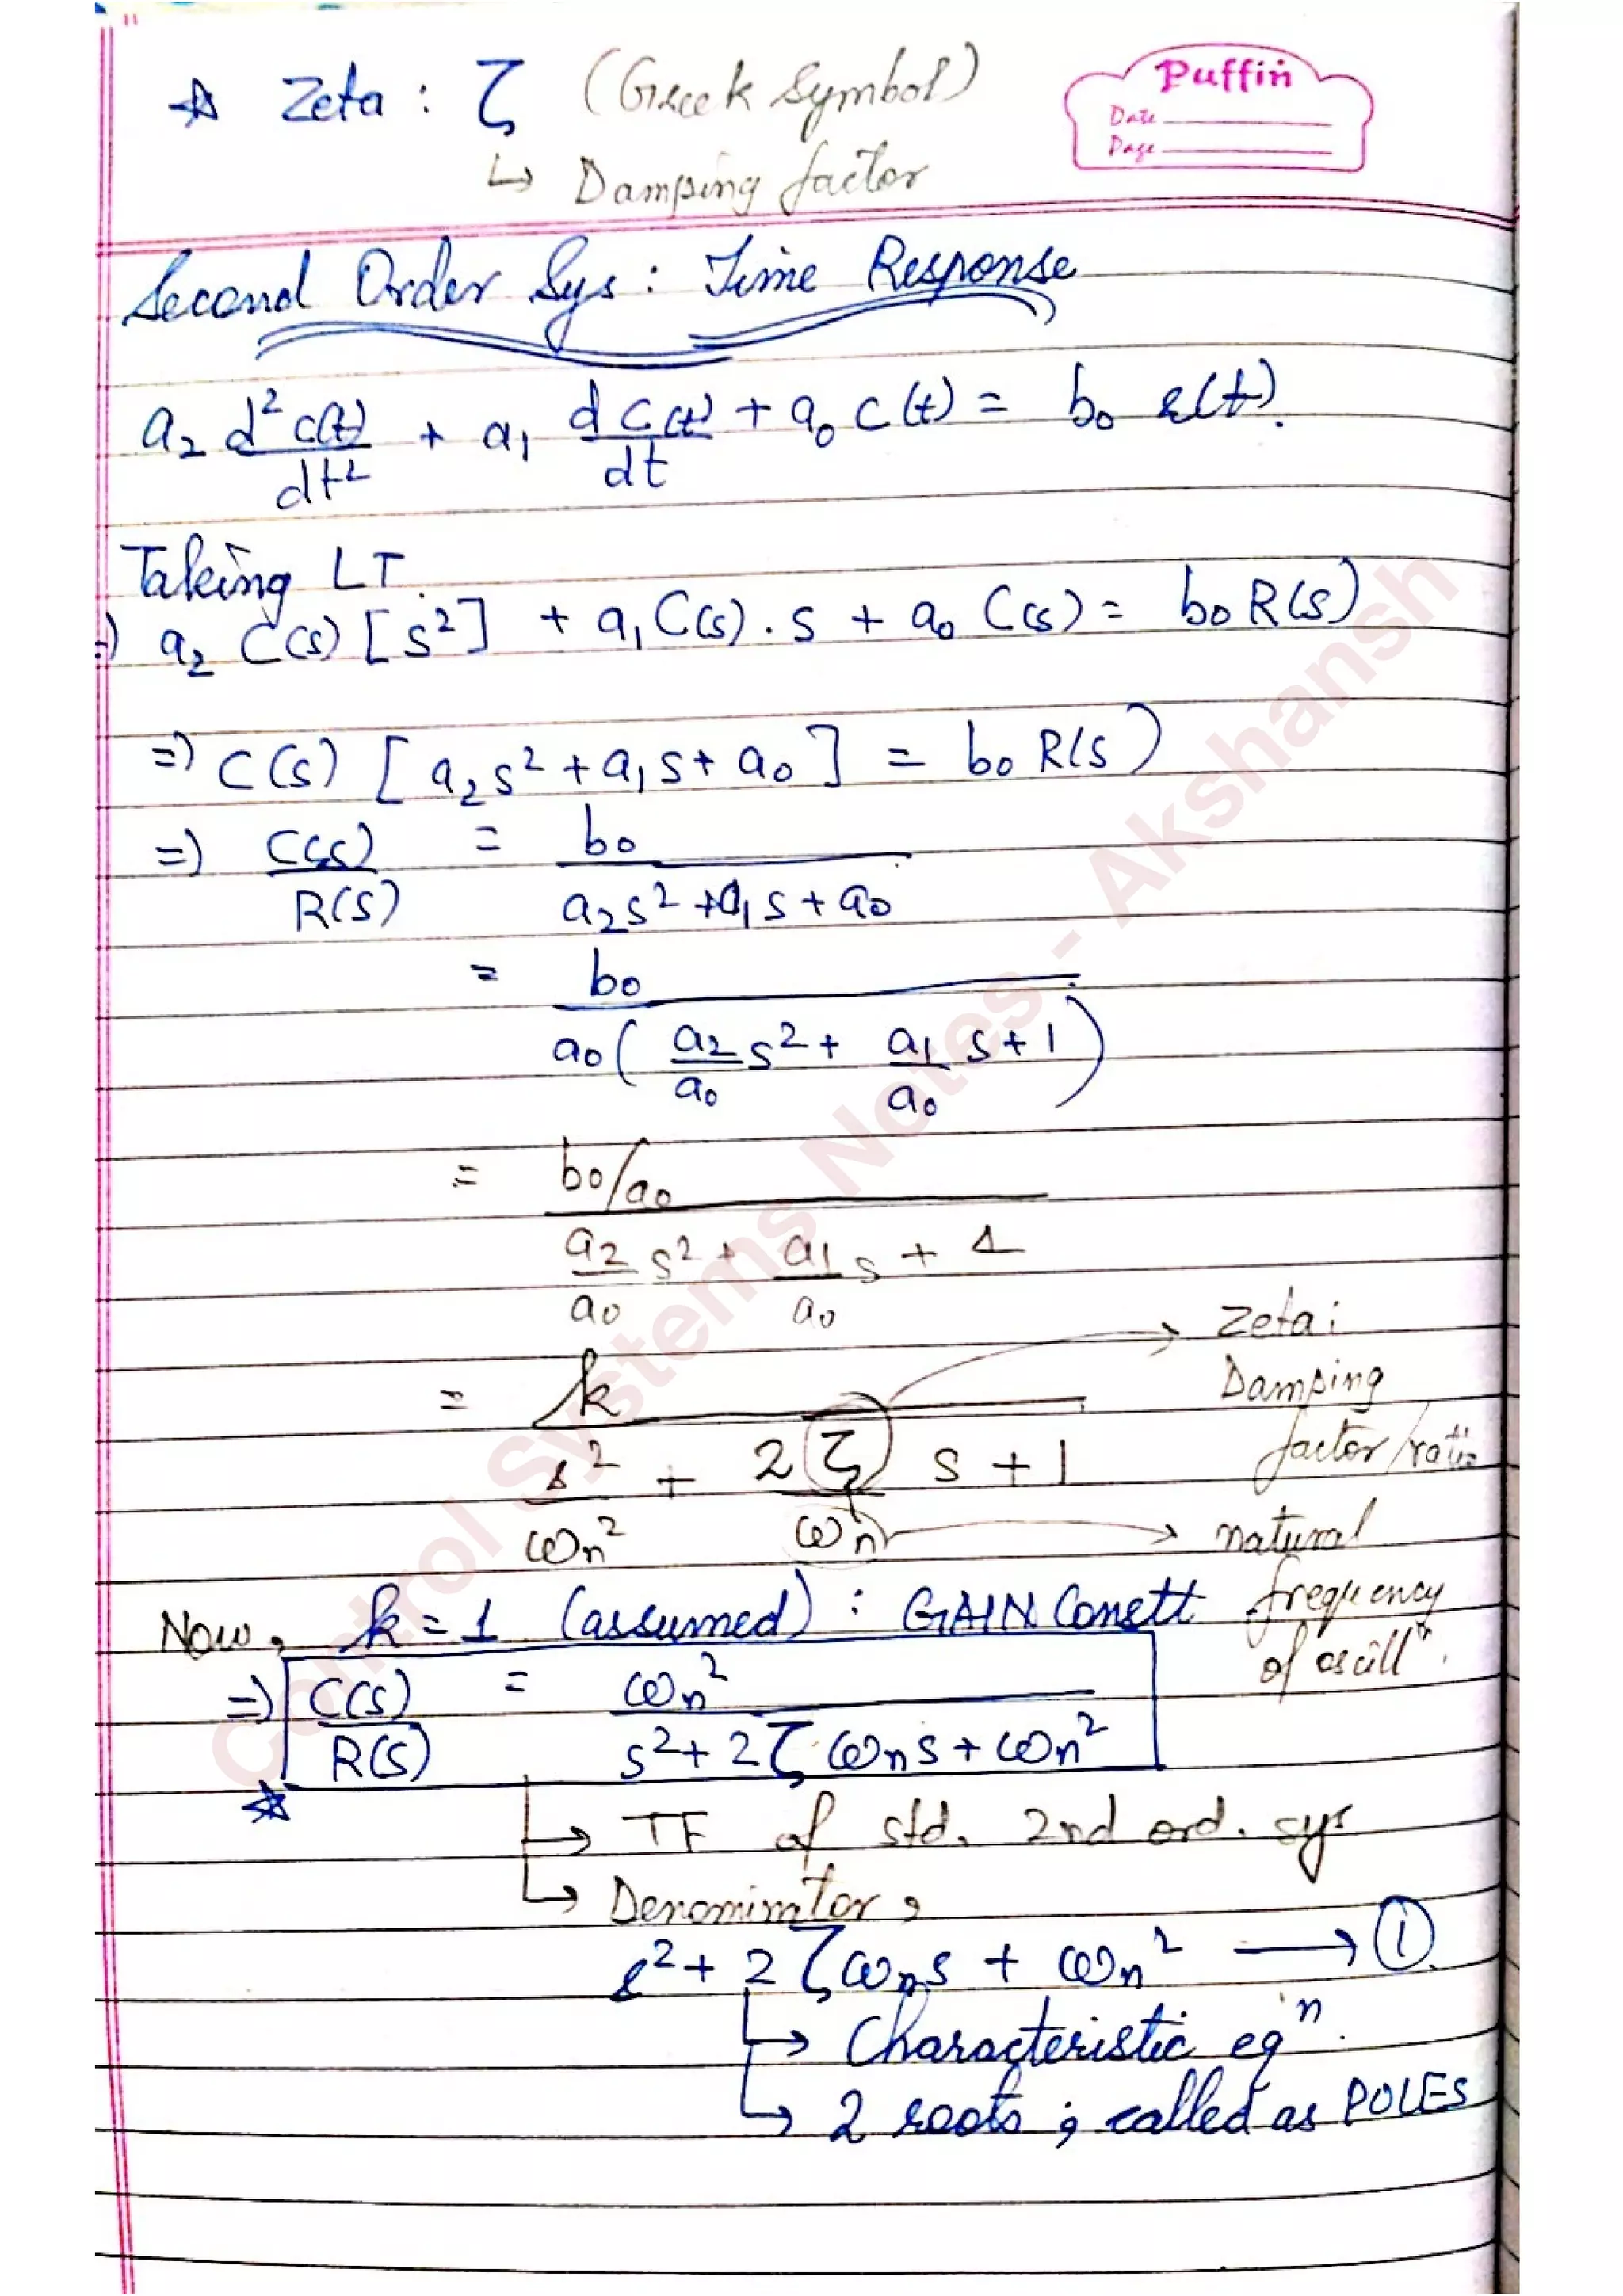 ☆ Zeta : ζ (Greek Symbol)
↳ Damping factor
Puffin
Date
Page
Second Order Sys : Time Response
a₂ d²c(t)/dt² + a₁ dc(t)/dt + a₀ c(t) = b₀ r(t).
Taking LT.
⇒ a₂ C(s) [s²] + a₁ C(s) . s + a₀ C(s) = b₀ R(s)
⇒ C(s) [a₂s² + a₁s + a₀] = b₀ R(s)
⇒ C(s)/R(s) = b₀/(a₂s² + a₁s + a₀)
= b₀/(a₀(a₂/a₀ s² + a₁/a₀ s + 1))
= (b₀/a₀)/(a₂/a₀ s² + a₁/a₀ s + 1)
= k/(s²/ωn² + 2ζ/ωn s + 1)
→ Zeta :
Damping
factor/ratio
→ natural
frequency
of oscillⁿ.
Now, k = 1 (assumed) : GAIN Constt
⇒ C(s)/R(s) = ωn²/(s² + 2ζωns + ωn²)
☆
↳ TF of std. 2nd ord. sys
↳ Denominator,
s² + 2ζωns + ωn² → ①
↳ Characteristic eqⁿ.
↳ 2 roots ; called as POLES
Control Systems Notes - Akshansh